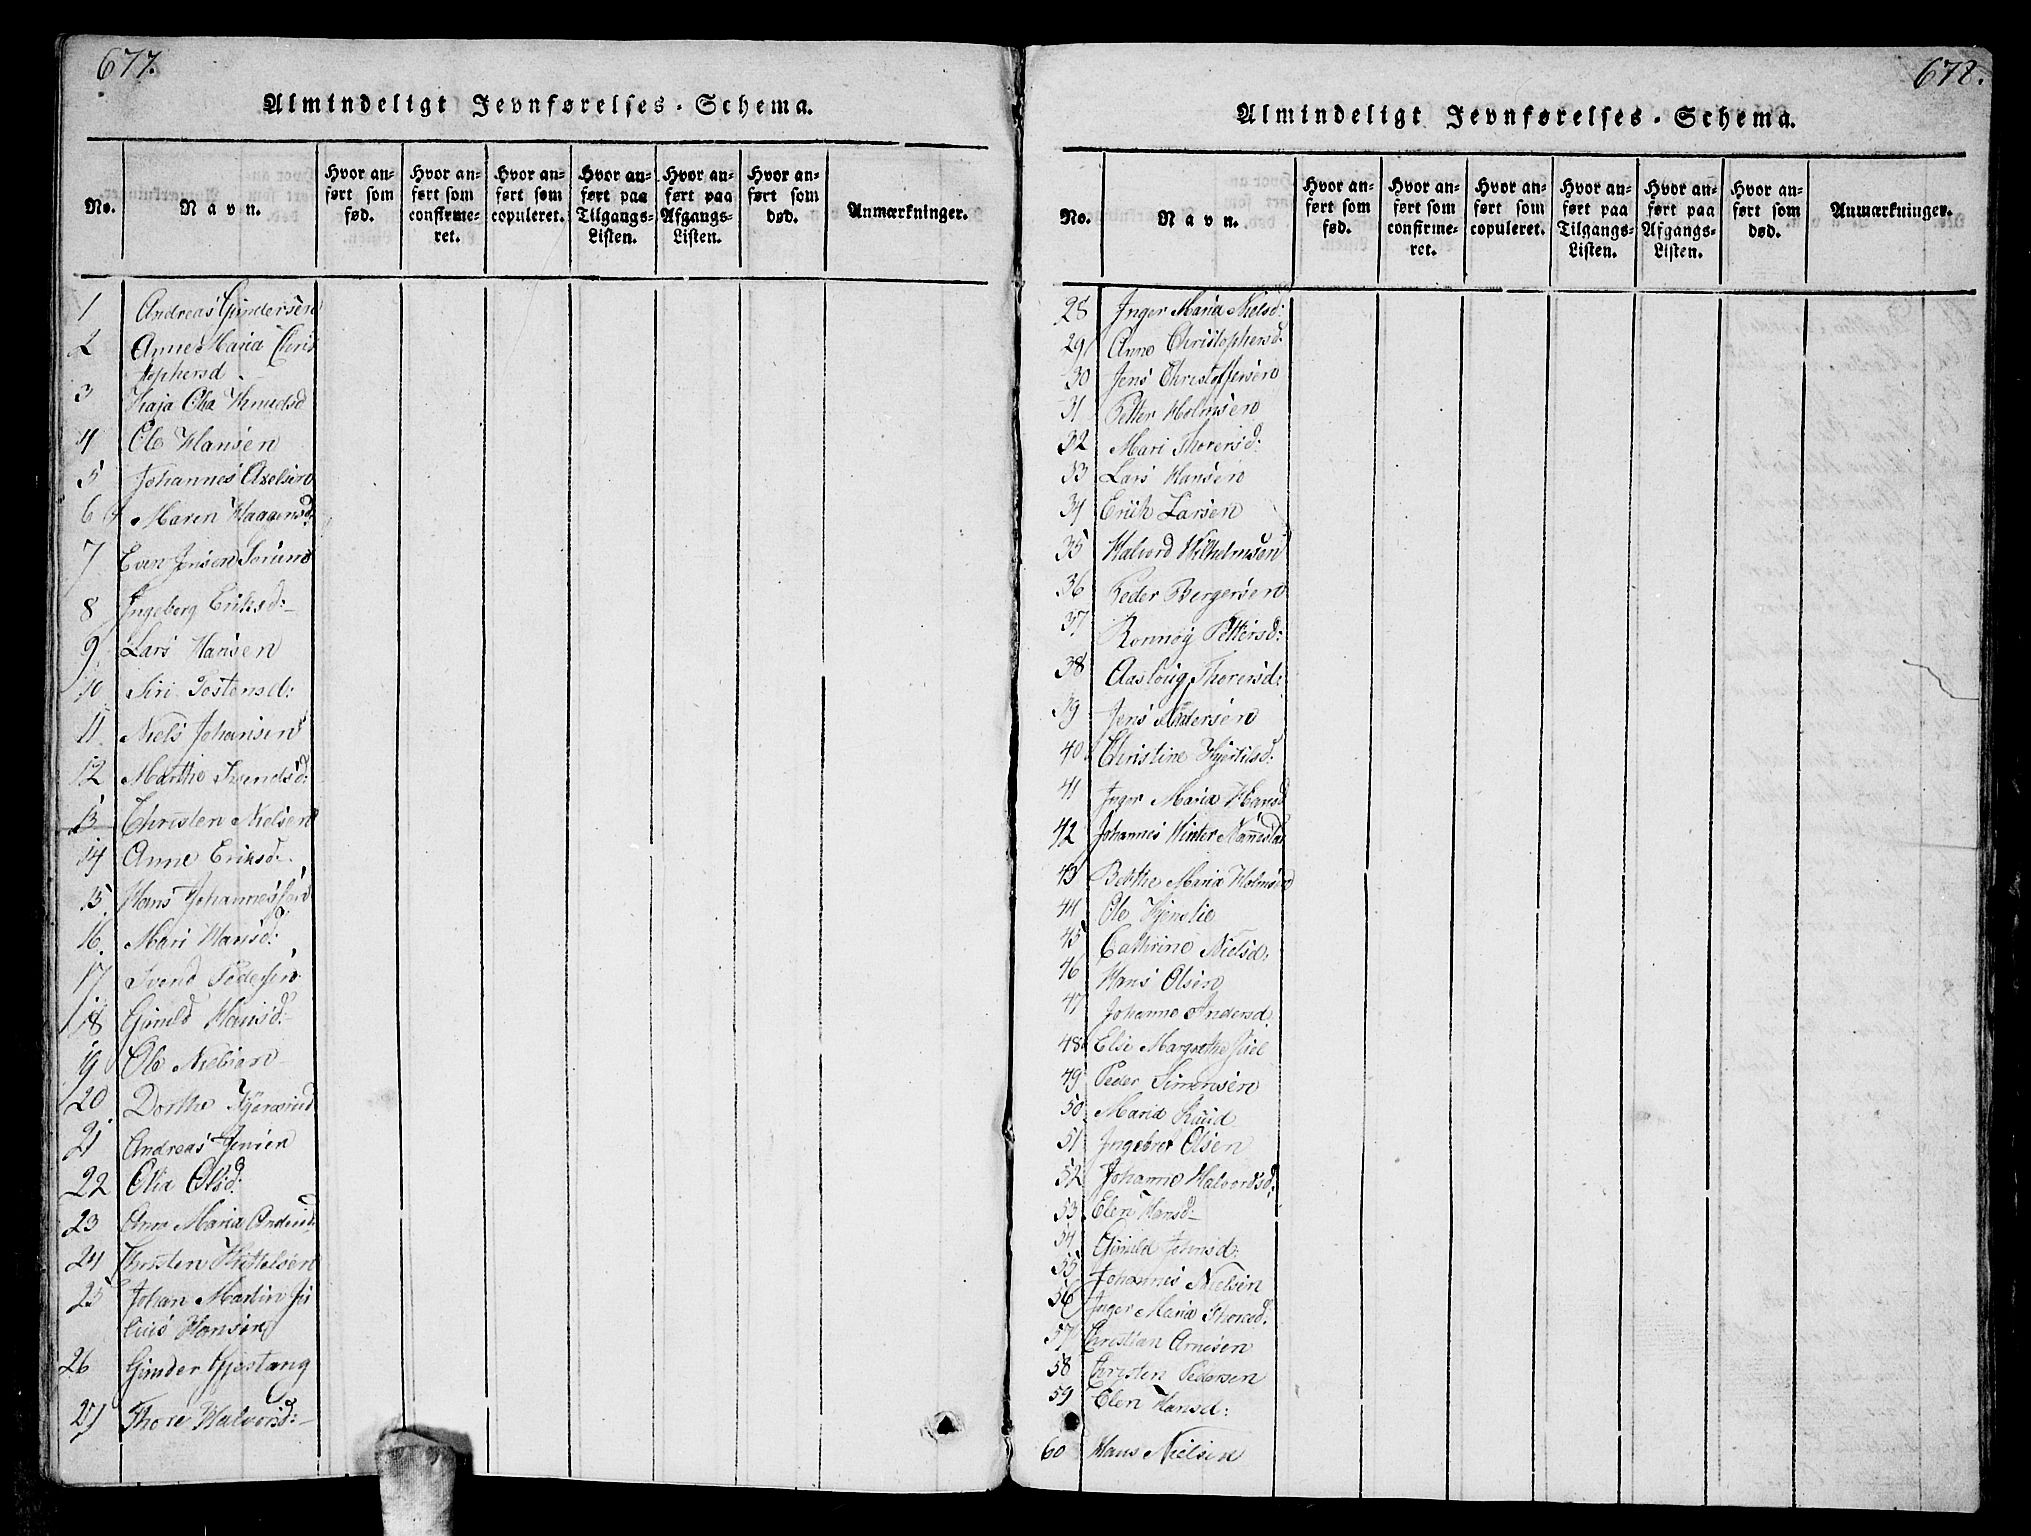 677.
Almindeligt Jevnførelses-Schema.
No.
Navn.
Hvor anført som fød.
Hvor anført som confirmeret.
Hvor anført som copuleret.
Hvor anført paa Tilgangs-Listen.
Hvor anført paa Afgangs-Listen.
Hvor anført som død.
Anmærkninger.
1 Andreas Gundersen
2 Anne Maria Chris
tophersd
3 Kaja Olia Knudsd
4 Ole Hansen
5 Johannes Axelsen
6 Maren Haagensd:
7 Even Jensen
8 Ingeborg Eriksd:
9 Lars Hansen
10 Siri Jostensd:
11 Niels Johansen
12 Marthe Svendsd:
13 Christen Nielsen
14 Anne Eriksd:
15 Hans Johannessen
16 Mari Hansd:
17 Svend Pedersen
18 Gunild Hansd:
19 Ole Nielsen
20 Dorthe
21 Andreas Jensen
22 Olia Olsd:
23 Anne Maria Andersd:
24 Christen Kittelsen
25 Johan Martin Ju
lius Hansen
26 Gunder Gjestang
27 Thore Halvorsd:
678.
Almindeligt Jevnførelses-Schema.
No.
Navn.
Hvor anført som fød.
Hvor anført som confirmeret.
Hvor anført som copuleret.
Hvor anført paa Tilgangs-Listen.
Hvor anført paa Afgangs-Listen.
Hvor anført som død.
Anmærkninger.
28 Inger Maria Nielsd:
29 Anne Christophersd:
30 Jens Christoffersen
31 Petter Holmsen
32 Mari Thorersd:
33 Lars Hansen
34 Erik Larsen
35 Halvord Wilhelmsen
36 Peder Bergersen
37 Ronnøg Pettersd:
38 Aasloug Thorersd:
39 Jens Andersen
40 Christine Kjertilsd:
41 Inger Maria Hansd
42 Johannes Winter Nannestad
43 Berthe Maria Holmsen
44 Ole Kjenslie
45 Cathrine Nielsd:
46 Hans Olsen
47 Johanne Andersd.
48 Else Margrethe Juel
49 Peder Simensen
50 Maria Ruud
51 Ingebret Olsen
52 Johanne Halvordsd:
53 Elen Hansd:
54 Gunild Johnsd:
55 Johannes Nielsen
56 Inger Maria Thoresd:
57 Christian Arnesen
58 Christen Pedersen
59 Elen Hansd:
60 Hans Nielsen